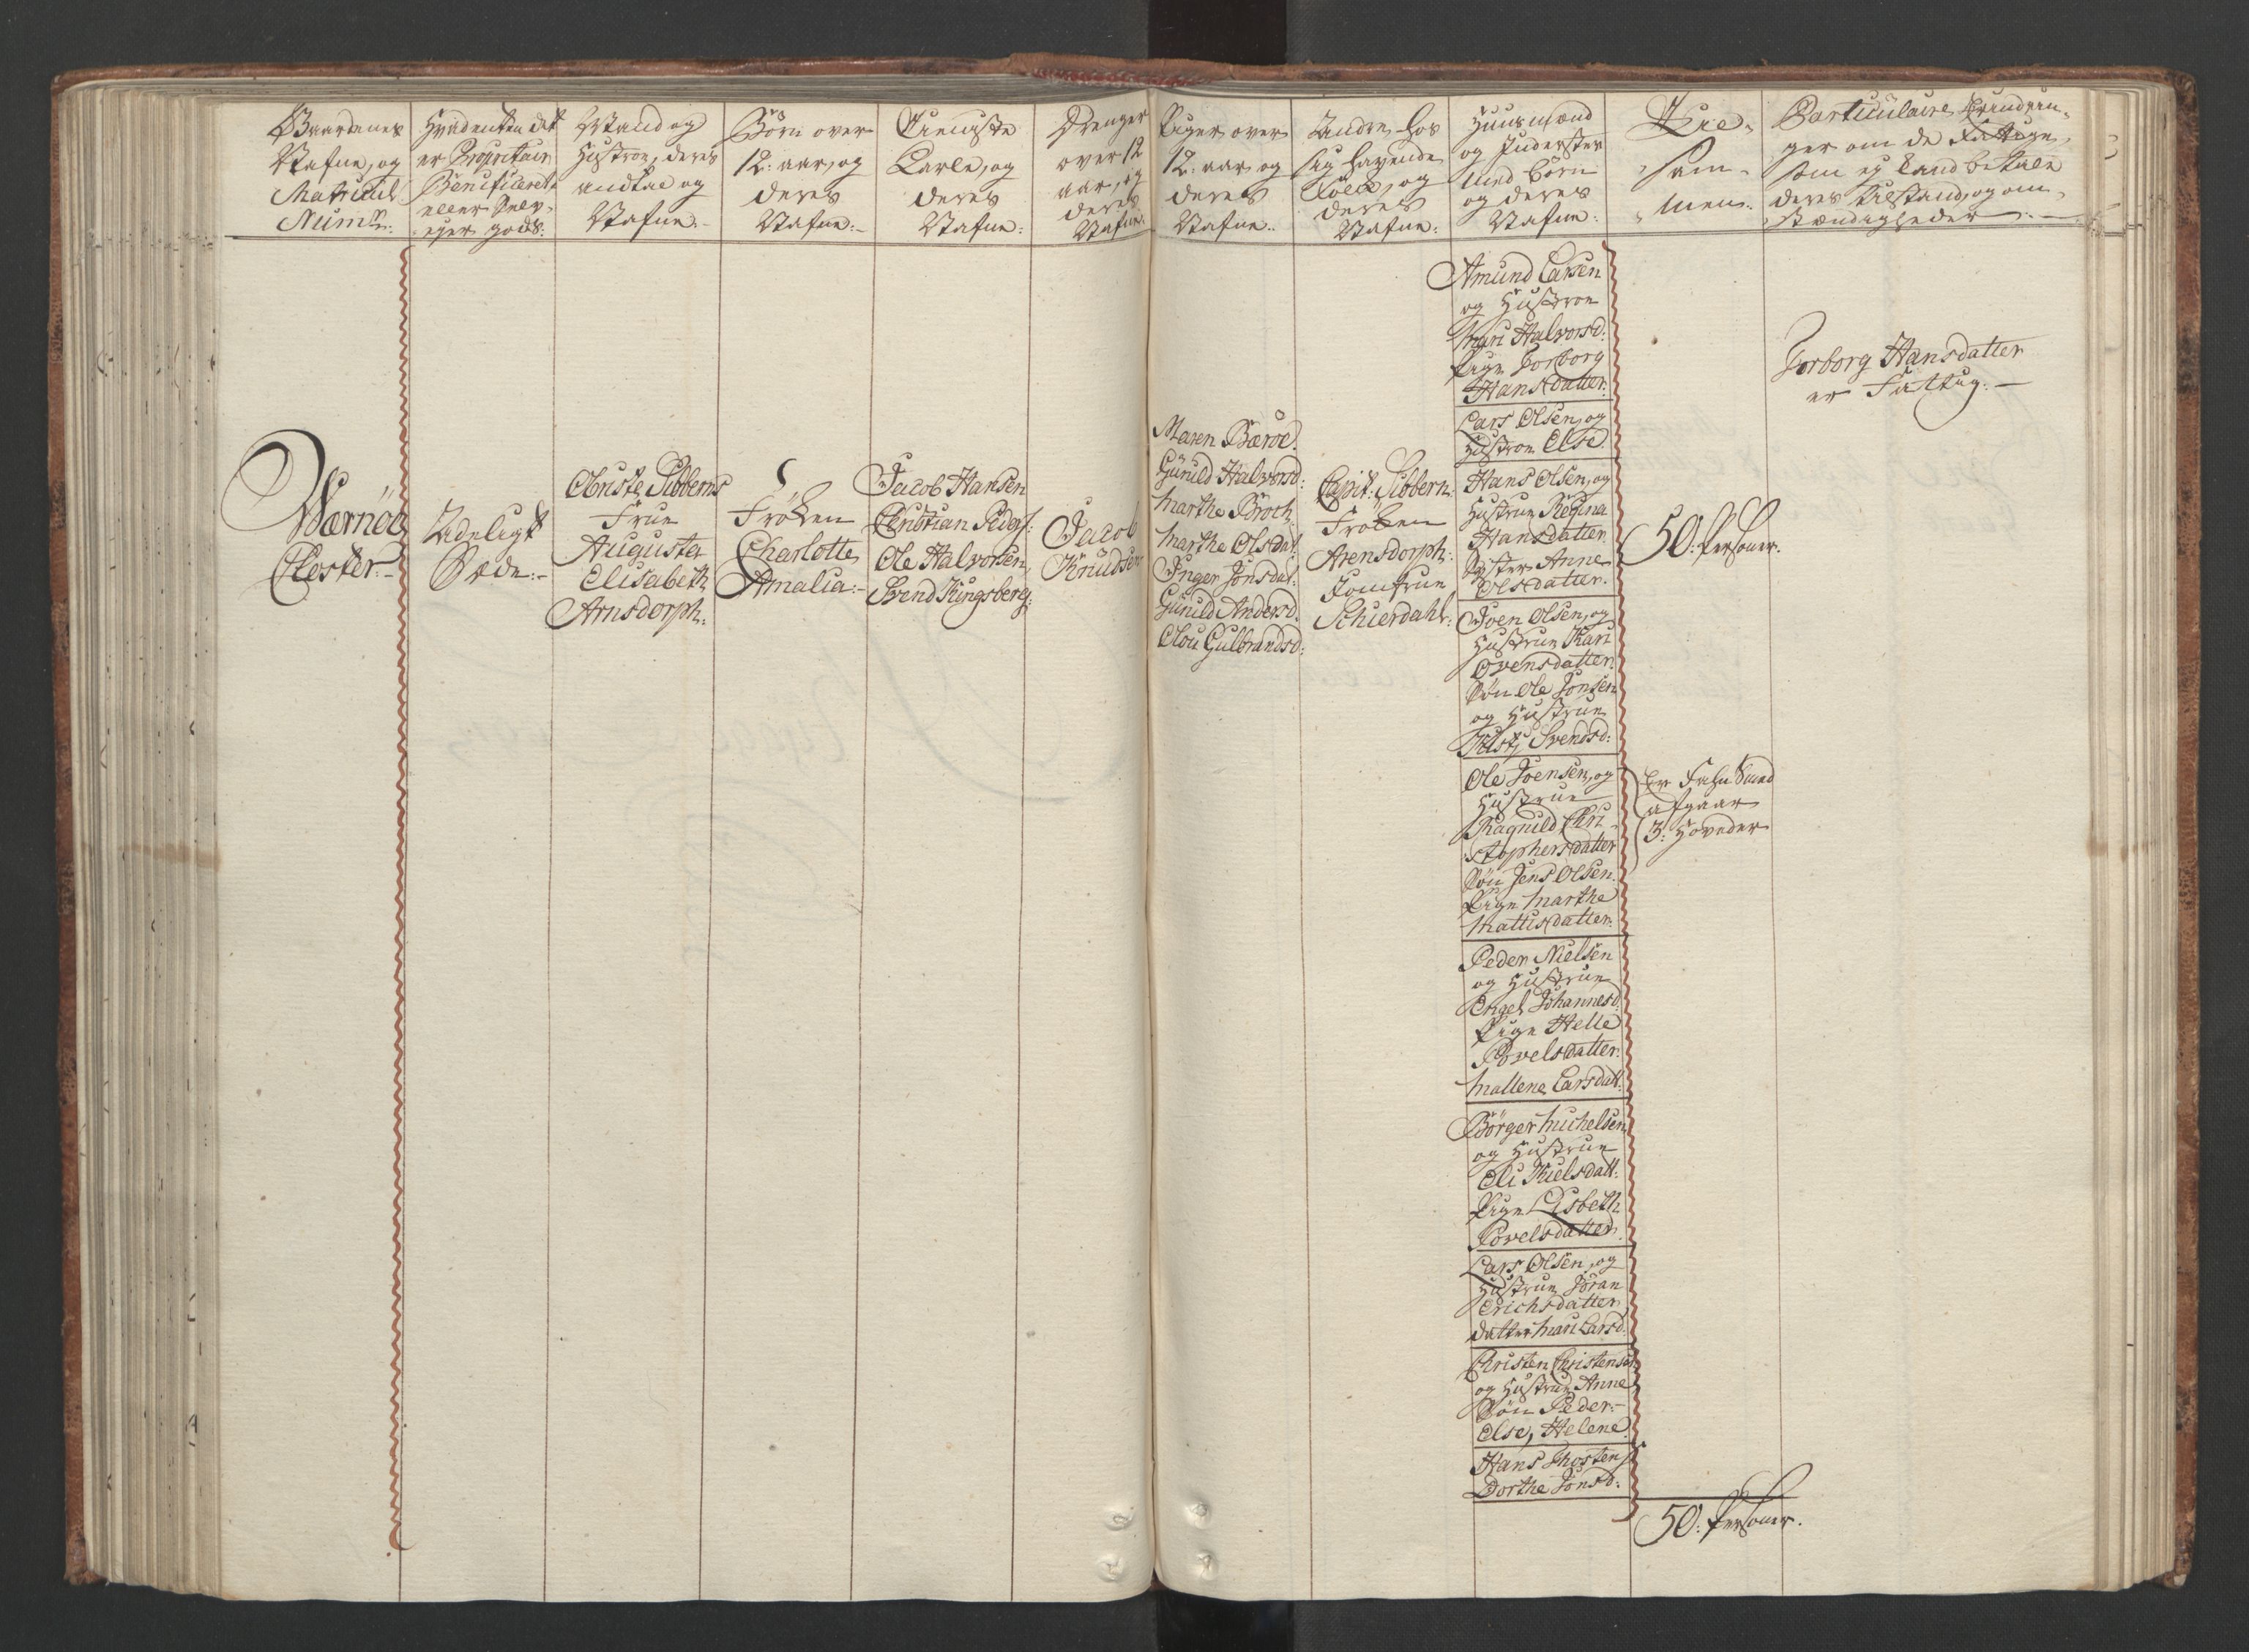 Gaardenes
Nafne, og
Matricul
Num^r:
Hvidenten det
er Proprietair
Beneficeret
eller Selv-
ejer gods:
Mand og
Hustroe, deres
andtal og
Nafne:-
Börn over
12: aar, og
deres
Nafne:-
Tieniste
Karle, og
deres
Nafne:
Drenger
over 12
aar, og
deres
Nafne:
Piger over
12: aar, og
deres
Nafne:
Andre hos
sig havende
Folk, og
deres
Nafne:
Huusmænd
og Inderster
med börn
og deres
Nafne:
Tie-
sam-
men:
Particulaire Erindrin-
ger om de Fattige,
som ej kand betale
deres Tilstand, og om-
stændigheder:-
Wærnöe
Closter:-
Adeligt
Sæde:-
Obriste Sibberns
Frue
Augusta
Elisabeth
Arnsdorph:
Fröken
Charlotte
Amalia:-
Jacob Hansen
Christian Peders:
Ole Halvorsen
Svend Kingsberg:
Jacob
Knudsen
Maren Bæröe
Gunild Halvorsd:
Marthe Broch:
Marthe Olsdat:
Inger Jonsdat:
Gunild Andersd:
Olou Gulbrandsd:
Capit: Sibbern:
Fröken
Arensdorph:
Jomfrue
Schierdahl:
Amund Larsen
og Hustroe
Mari Halvorsd:
Pige Torborg
Hansdatter:
Lars Olsen, og
Hustroe Else
Hans Olsen, og
Hustrue Regina
Hansdatter
Syster Anne
Olsdatter.
Joen Olsen, og
Hustrue Kari
Ovensdatter
Sön Ole Jonsen
og Hustrue
Kisti Svendsd:
Ole Joensen, og
Hustrue
Ragnild Chri-
stophersdatter
Sön Jens Olsen
Pige Marthe
Mattisdatter:
Peder Nielsen
og Hustrue
Engel Johannesd:
Pige Helle
Povelsdatter:
Mallene Larsdat:
Börger Michelsen
og Hustrue
Eli Nielsdatt:
Pige Lisbeth
Povelsdatter
Lars Olsen, og
Hustrue Jöran
Erichsdatter
datter Mari Larsd:
Christen Christensen
og Hustrue Anne
Sön Peder:-
Else, Helene
Hans Thosten
Dorthe Jonsd:
50: Personer.
Er Johnsund
afgaar
3: Hoveder
50: Personer.
Torborg Hansdatter
er Fattig:-